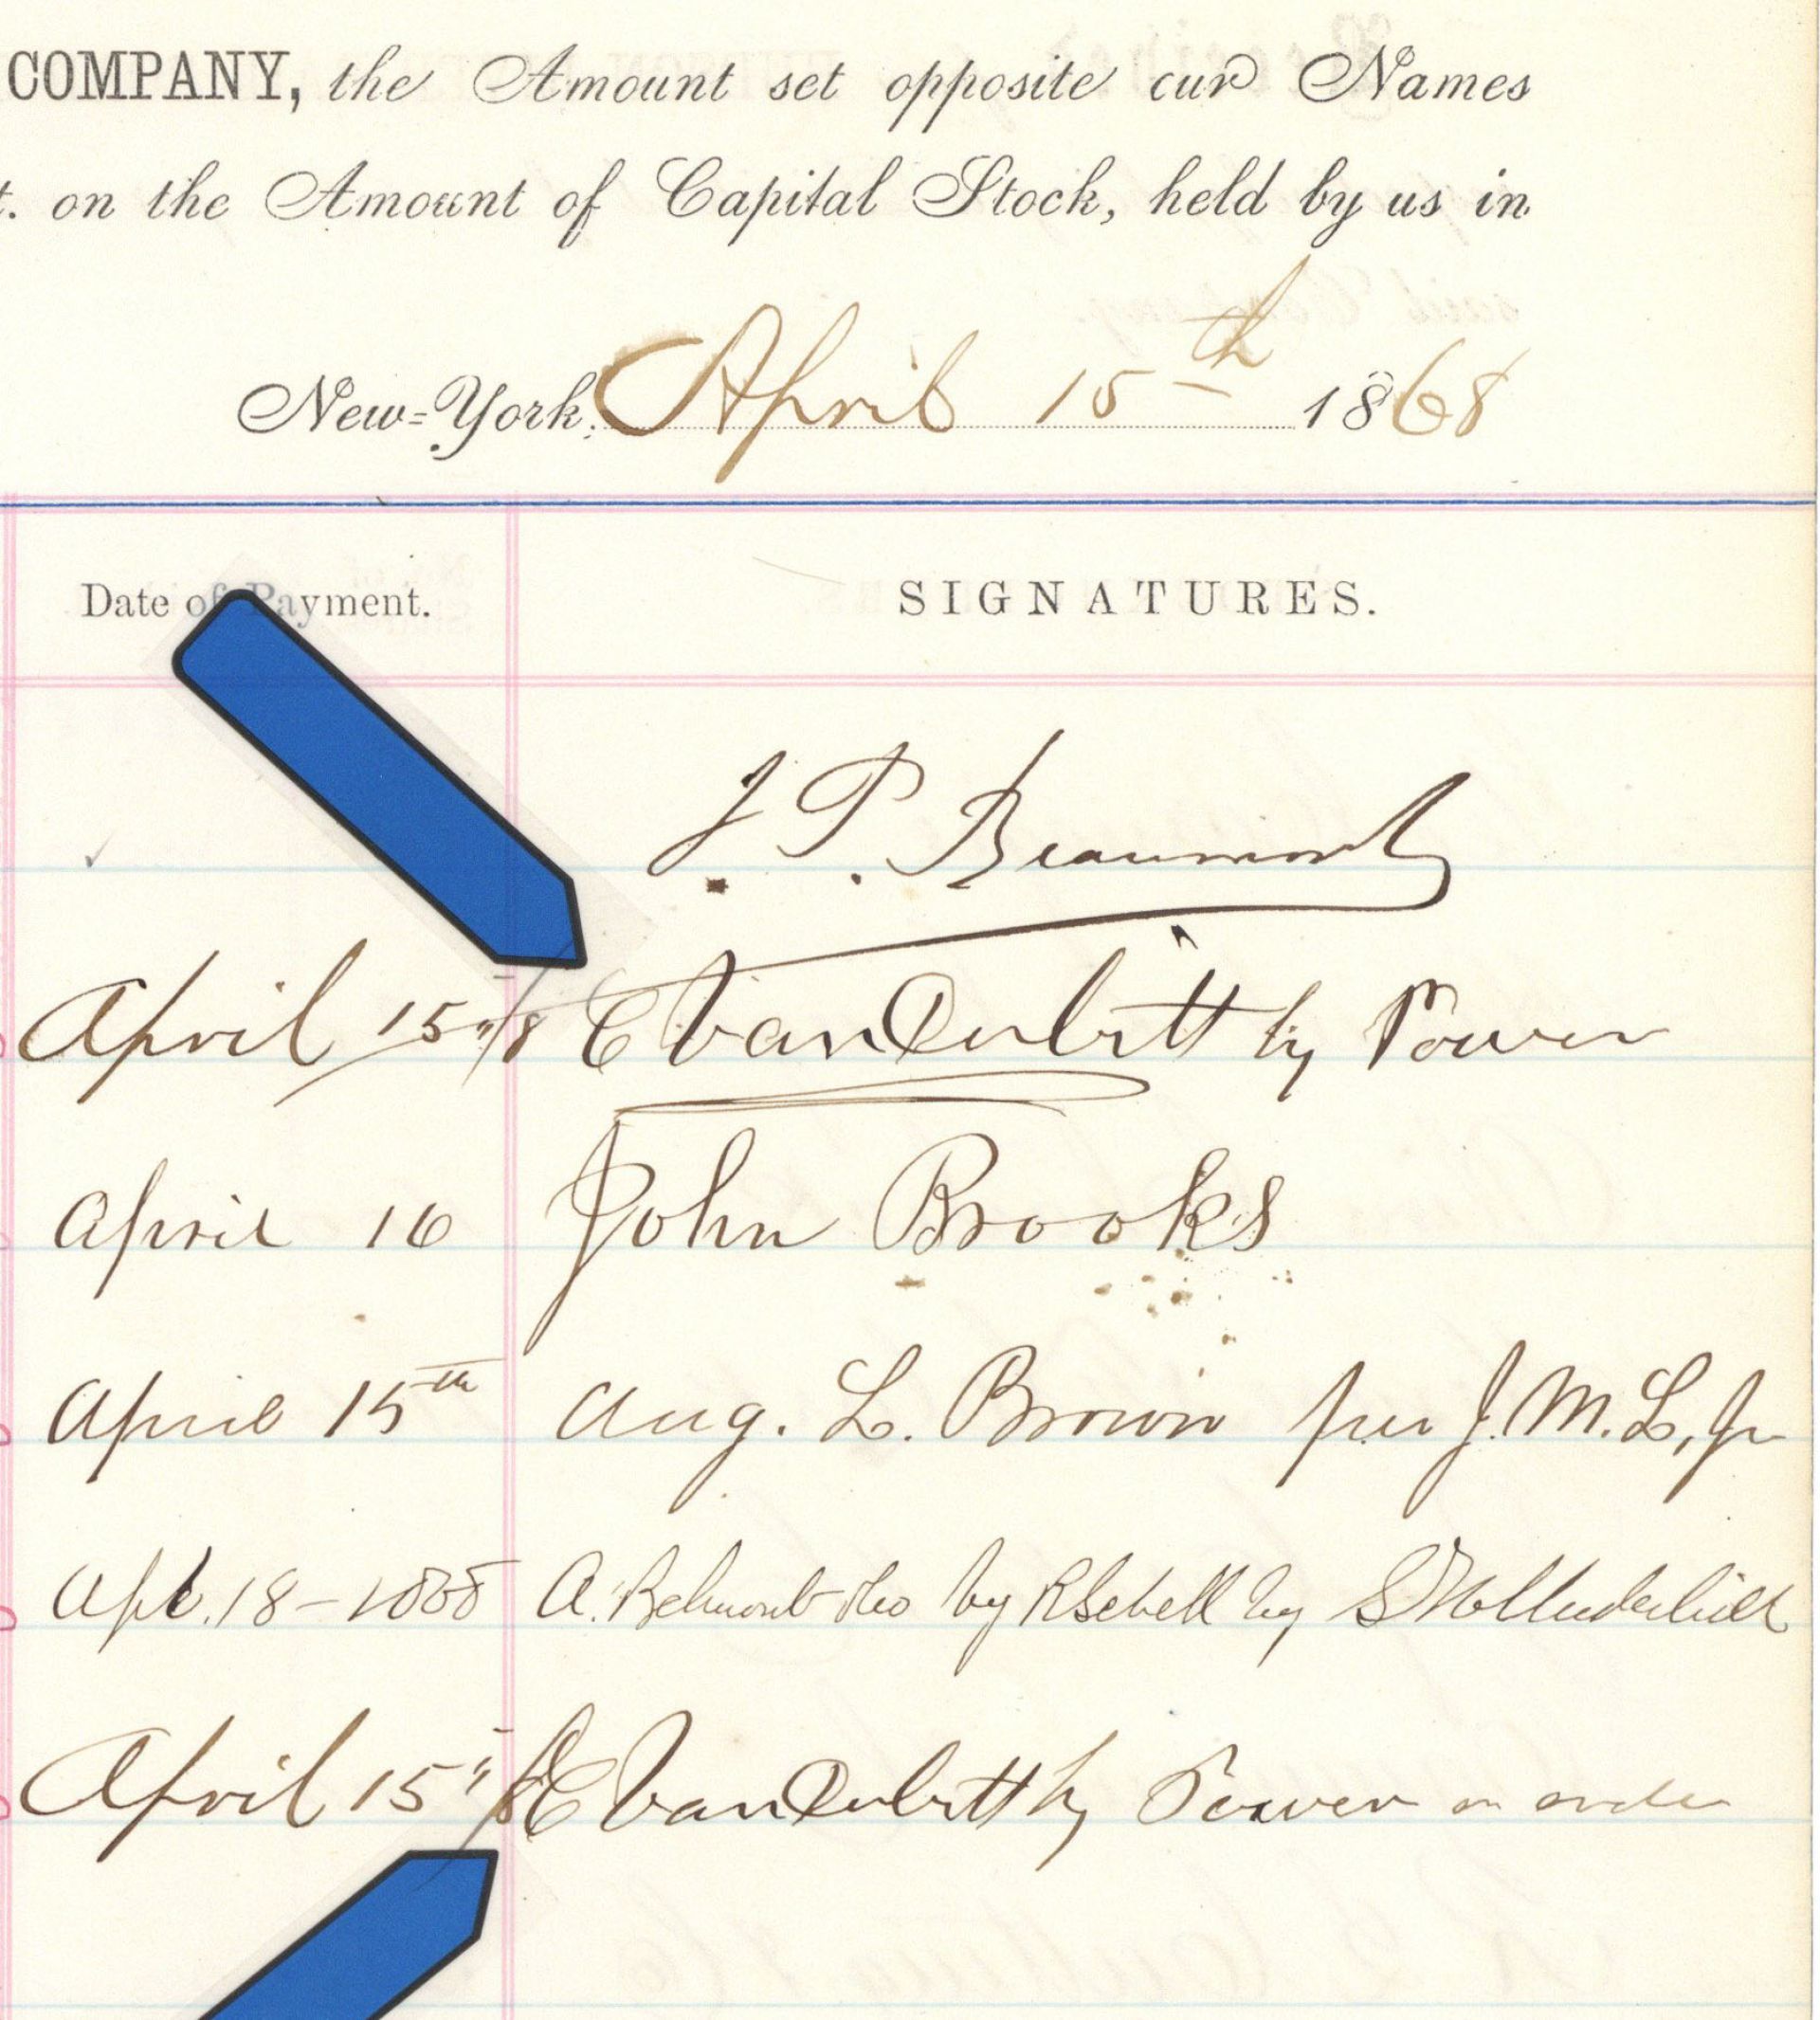 COMPANY, the Amount set opposite our Names
t. on the Amount of Capital Stock, held by us in
New-York. April 15th 1868
Date of Payment. SIGNATURES.
J. P. Beaumont
April 15"/8 C VanDerbilt by Power
April 16 John Brooks
April 15th Aug. L. Brown per J. M. L, Jr
Apl. 18-1868 A. Belmont & Co by R Schell by
April 15"/8 C VanDerbilt by Power on order